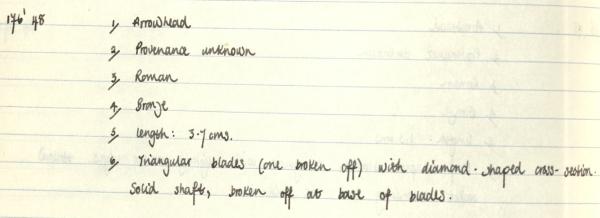 176'48 1, Arrowhead
2, Provenance unknown
3, Roman
4, Bronze
5, length: 3.7 cms.
6, Triangular blades (one broken off) with diamond-shaped cross-section.
Solid shaft, broken off at base of blades.